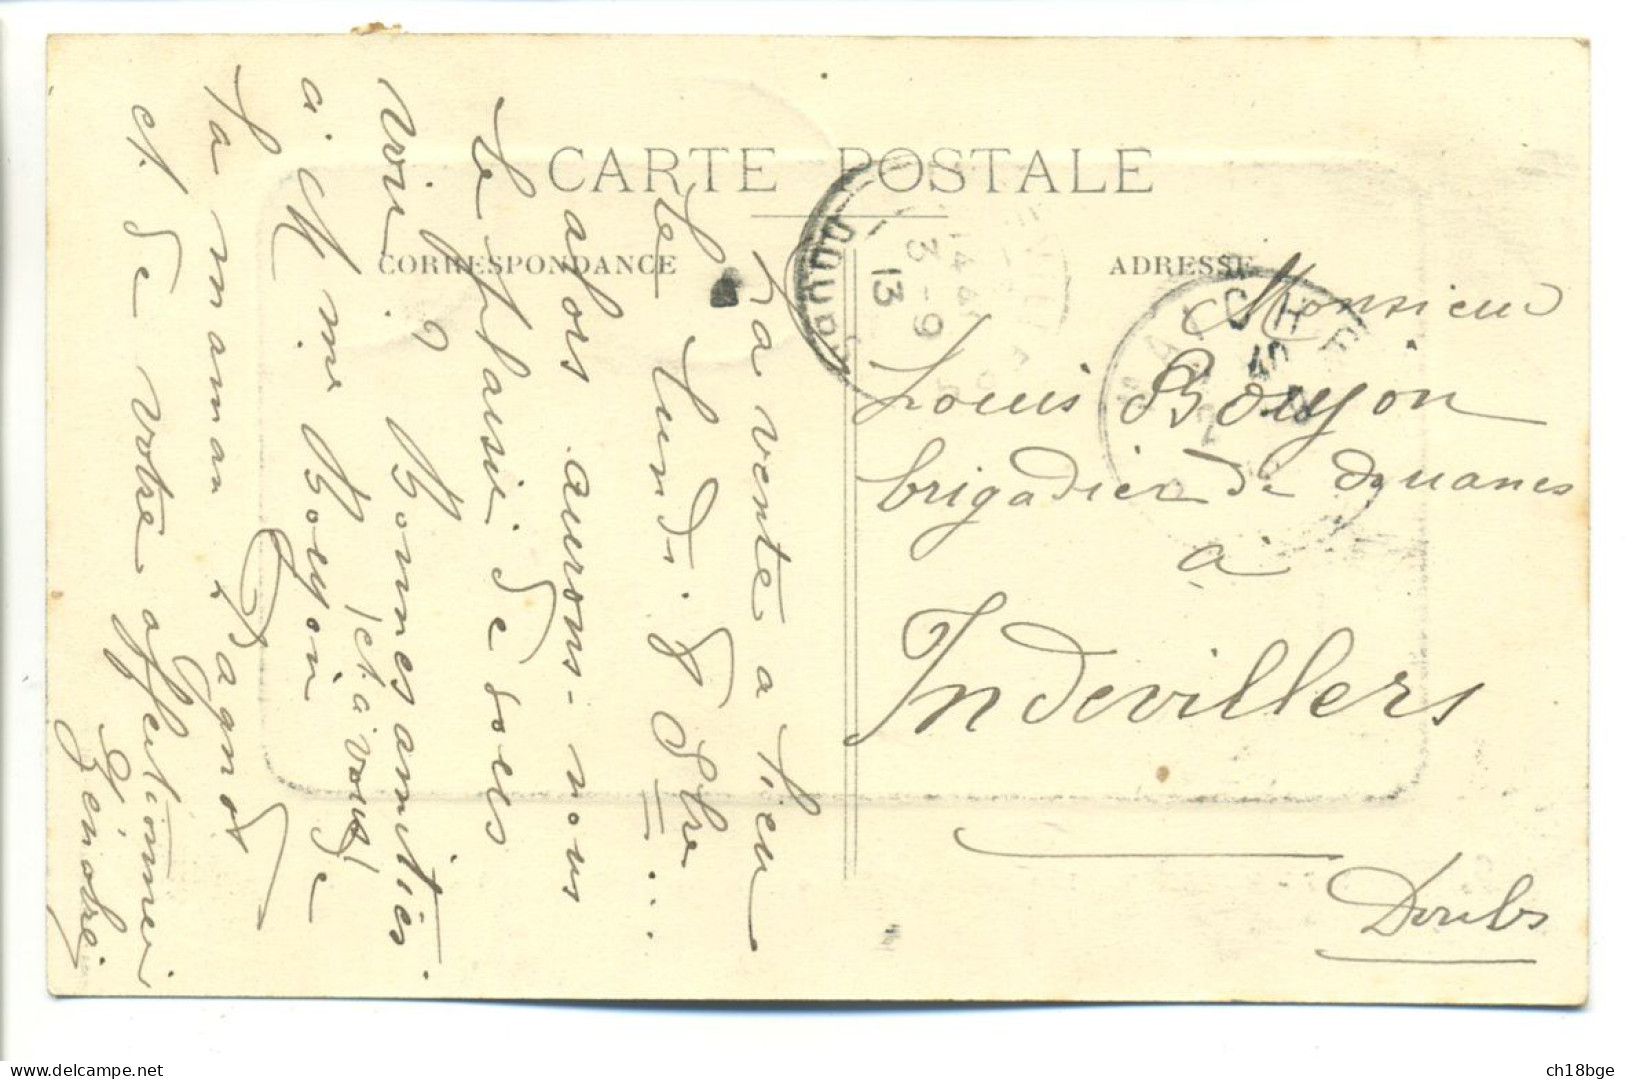 CARTE POSTALE
CORRESPONDANCE
ADRESSE
La vente a lieu
le Lundi 8 8bre...
alors aurons-nous
le plaisir de vous
voir ?
Bonnes amitiés
à Mme Boujon
(et à vous) de
la maman Pagnot
et de votre affectionnée
Monsieur
Louis Boujon
brigadier de douanes
à
Indevillers
Doubs
DOUBS
14
3 - 9
13
MAICHE
ch18bge